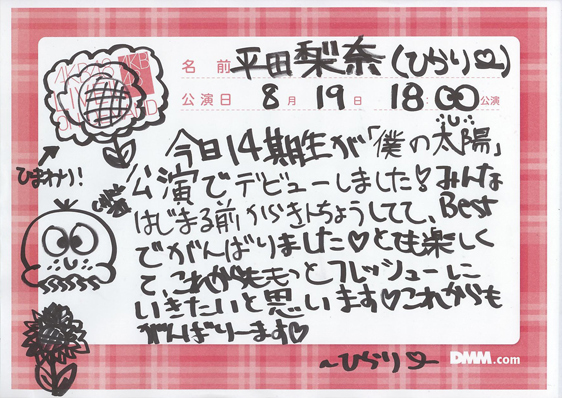 名前 平田梨奈(ひらり♡)
公演日 8月19日 18:00公演
ひまわり!
今日14期生が「僕の太陽」
公演でデビューしました!みんな
はじまる前からきんちょうしてて、Best
でがんばりました♡とても楽しく
て、これから先もっとフレッシュに
いきたいと思います♡これからも
がんばりまーす♡
〜ひらり♡
DMM.com